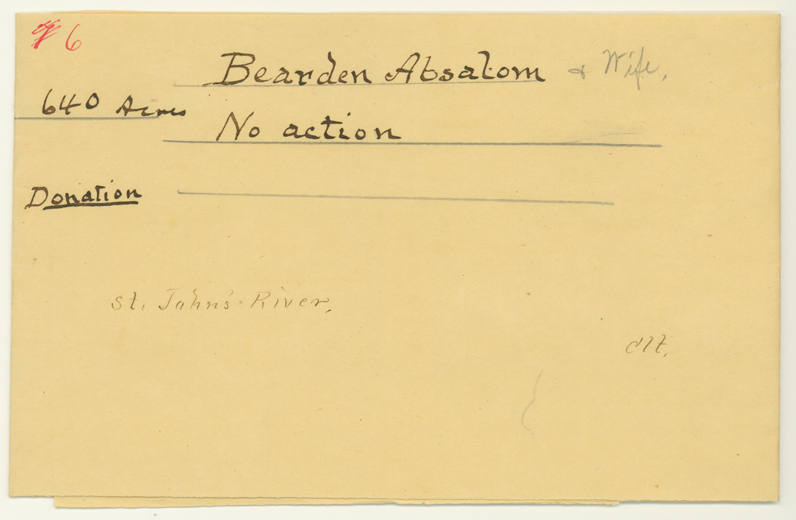 6
Bearden Absalom & Wife.
640 Acres
No action
Donation
St. John's River,